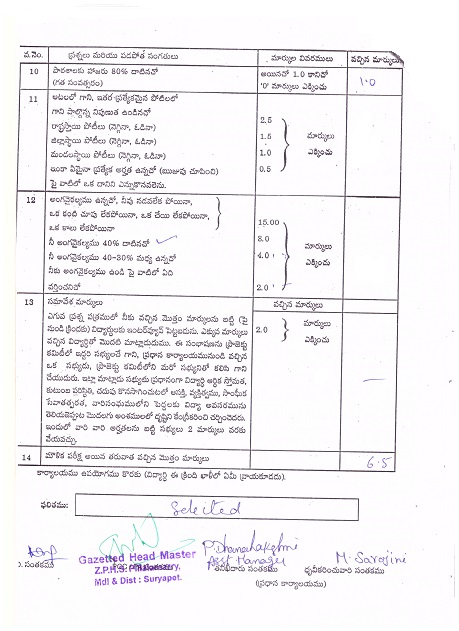 వ.నెం. ప్రశ్నలు మరియు పడపోత సంగతులు మార్కుల వివరములు వచ్చిన మార్కులు
10 పాఠశాలకు హాజరు 80% దాటినచో అయినచో 1.0 కానిచో 1.0
(గత సంవత్సరం) '0' మార్కులు ఎక్కించు
11 ఆటలలో గాని, ఇతర ప్రత్యేకమైన పోటిలలో
గాని పాల్గొన్న నిపుణుత ఉండినచో 2.5
రాష్ట్రస్థాయి పోటీలు (నెగ్గినా, ఓడినా) 1.5 మార్కులు
జిల్లాస్థాయి పోటీలు (నెగ్గినా, ఓడినా) 1.0 ఎక్కించు
మండలస్థాయి పోటీలు (నెగ్గినా, ఓడినా) 0.5
ఇంకా ఏమైనా ప్రత్యేక అర్హత ఉన్నచో (ఋజువు చూపించి)
పై వాటిలో ఒక దానిని ఎన్నుకొనవలెను.
12 అంగవైకల్యము ఉన్నచో, నీవు నడవలేక పోయినా,
ఒక కంటి చూపు లేకపోయినా, ఒక చేయి లేకపోయినా, 15.00
ఒక కాలు లేకపోయినా
నీ అంగవైకల్యము 40% దాటినచో 8.0 మార్కులు
నీ అంగవైకల్యము 40-30% మధ్య ఉన్నచో 4.0 ఎక్కించు
నీకు అంగవైకల్యము ఉండి పై వాటిలో ఏది
వర్తించనిచో 2.0
13 సమావేశ మార్కులు వచ్చిన మార్కులు
ఎగువ ప్రశ్న పత్రములో నీకు వచ్చిన మొత్తం మార్కులను బట్టి (పై మార్కులు
నుండి క్రిందకు) విద్యార్థులకు ఇంటర్‌వ్యూవ్ పెట్టబడును. ఎక్కువ మార్కులు 2.0 ఎక్కించు
వచ్చిన విద్యార్థితో మొదటి మాట్లాడుదుము. ఈ సంభాషణను ప్రాజెక్టు
కమిటీలో ఇద్దరి సభ్యులచే గాని, ప్రధాన కార్యాలయమునుండి వచ్చిన
ఒక సభ్యుడు, ప్రాజెక్టు కమిటీలోని మరో సభ్యునితో కలిసి గాని
చేయుదురు. ఇట్లా మాట్లాడు సభ్యుడు ప్రధానంగా విద్యార్థి ఆర్థిక స్తోమత,
కుటుంబ పరిస్థితి, చదువు కొనసాగించుటలో ఆసక్తి, వ్యక్తిత్వము, సాంఘిక
సేవాతత్పరత, వారిసంఘములోని పెద్దలకు విద్యా అవసరమును
తెలియజెప్పుట మొదలుగు అంశములలో దృష్టిని కేంద్రీకరించి చర్చించెదరు.
ఇందులో వారి వారి అర్హతలను బట్టి సభ్యులు 2 మార్కులు వరకు
వేయవచ్చు.
14 మౌళిక పరీక్ష అయిన తరువాత వచ్చిన మొత్తం మార్కులు 6.5
కార్యాలయము ఉపయోగము కొరకు (విద్యార్థి ఈ క్రింది ఖాళీలో ఏమీ వ్రాయకూడదు).
ఫలితము: Selected
P. Dhanalakshmi
Gazetted Head Master Asst Manager M. Sarojini
సంతకము Z.P.H.S. సంతకము ధృవీకరించువారి సంతకము
Mdl & Dist : Suryapet. (ప్రధాన కార్యాలయము)